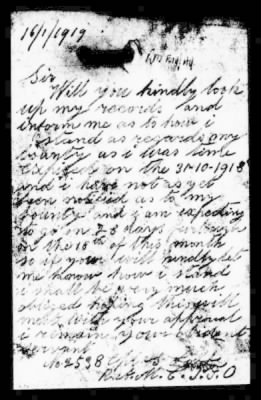 16/1/1919
Sir
Will you kindly look
up my records and
inform me as to how i
stand as regards my
bounty as i was time
expired on the 31-10-1918
and i have not as yet
been noticed as to my
bounty and i am expecting
to go on 28 days furlough
on the 18th of this month
so if you will kindly let
me know how i stand
i shall be very much
obliged hoping this will
meet with your approval
i remain your obedient
servant
No 2538